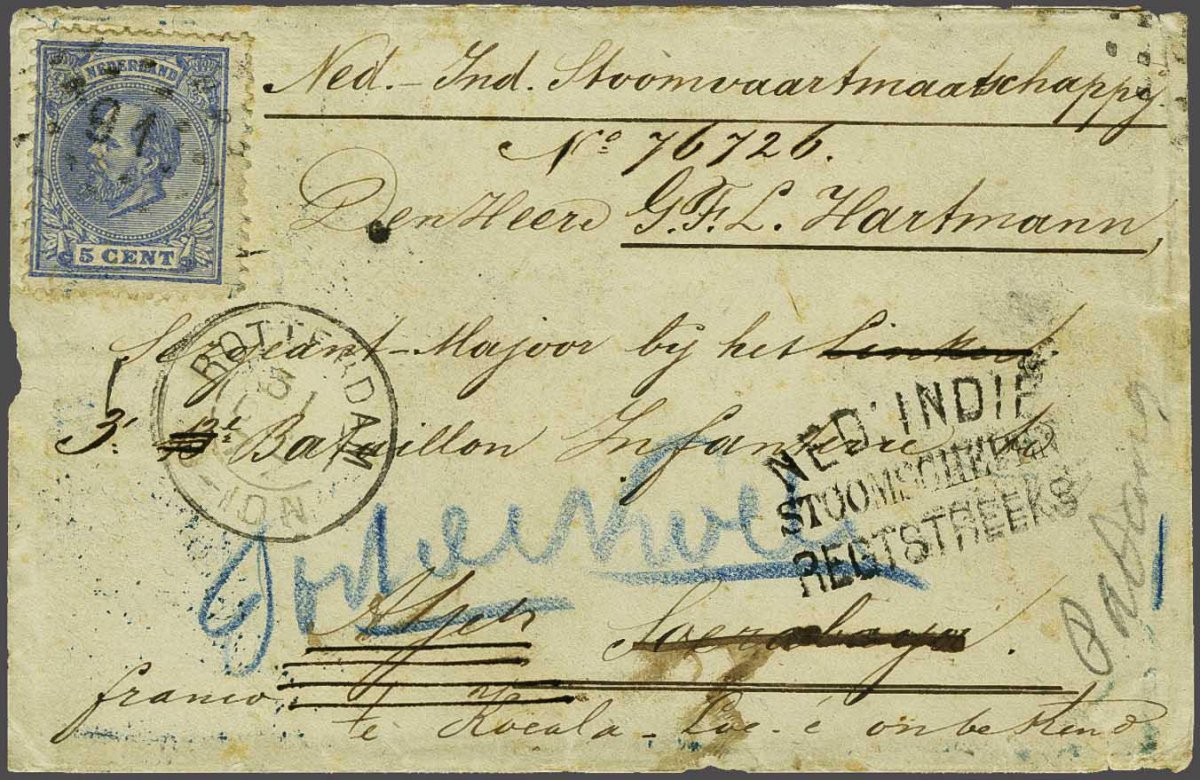 NEDERLAND
91
5 CENT
Ned.-Ind. Stoomvaartmaatschappy.
No 76726.
Den Heere G.F.L. Hartmann,
Sergeant-Majoor bij het
3e Bataillon Infanterie
ROTTERDAM
NED. INDIE
STOOMSCHEPEN
REGTSTREEKS
Atjeh Soerabaya.
franco
te Koeala-Loe-é onbekend